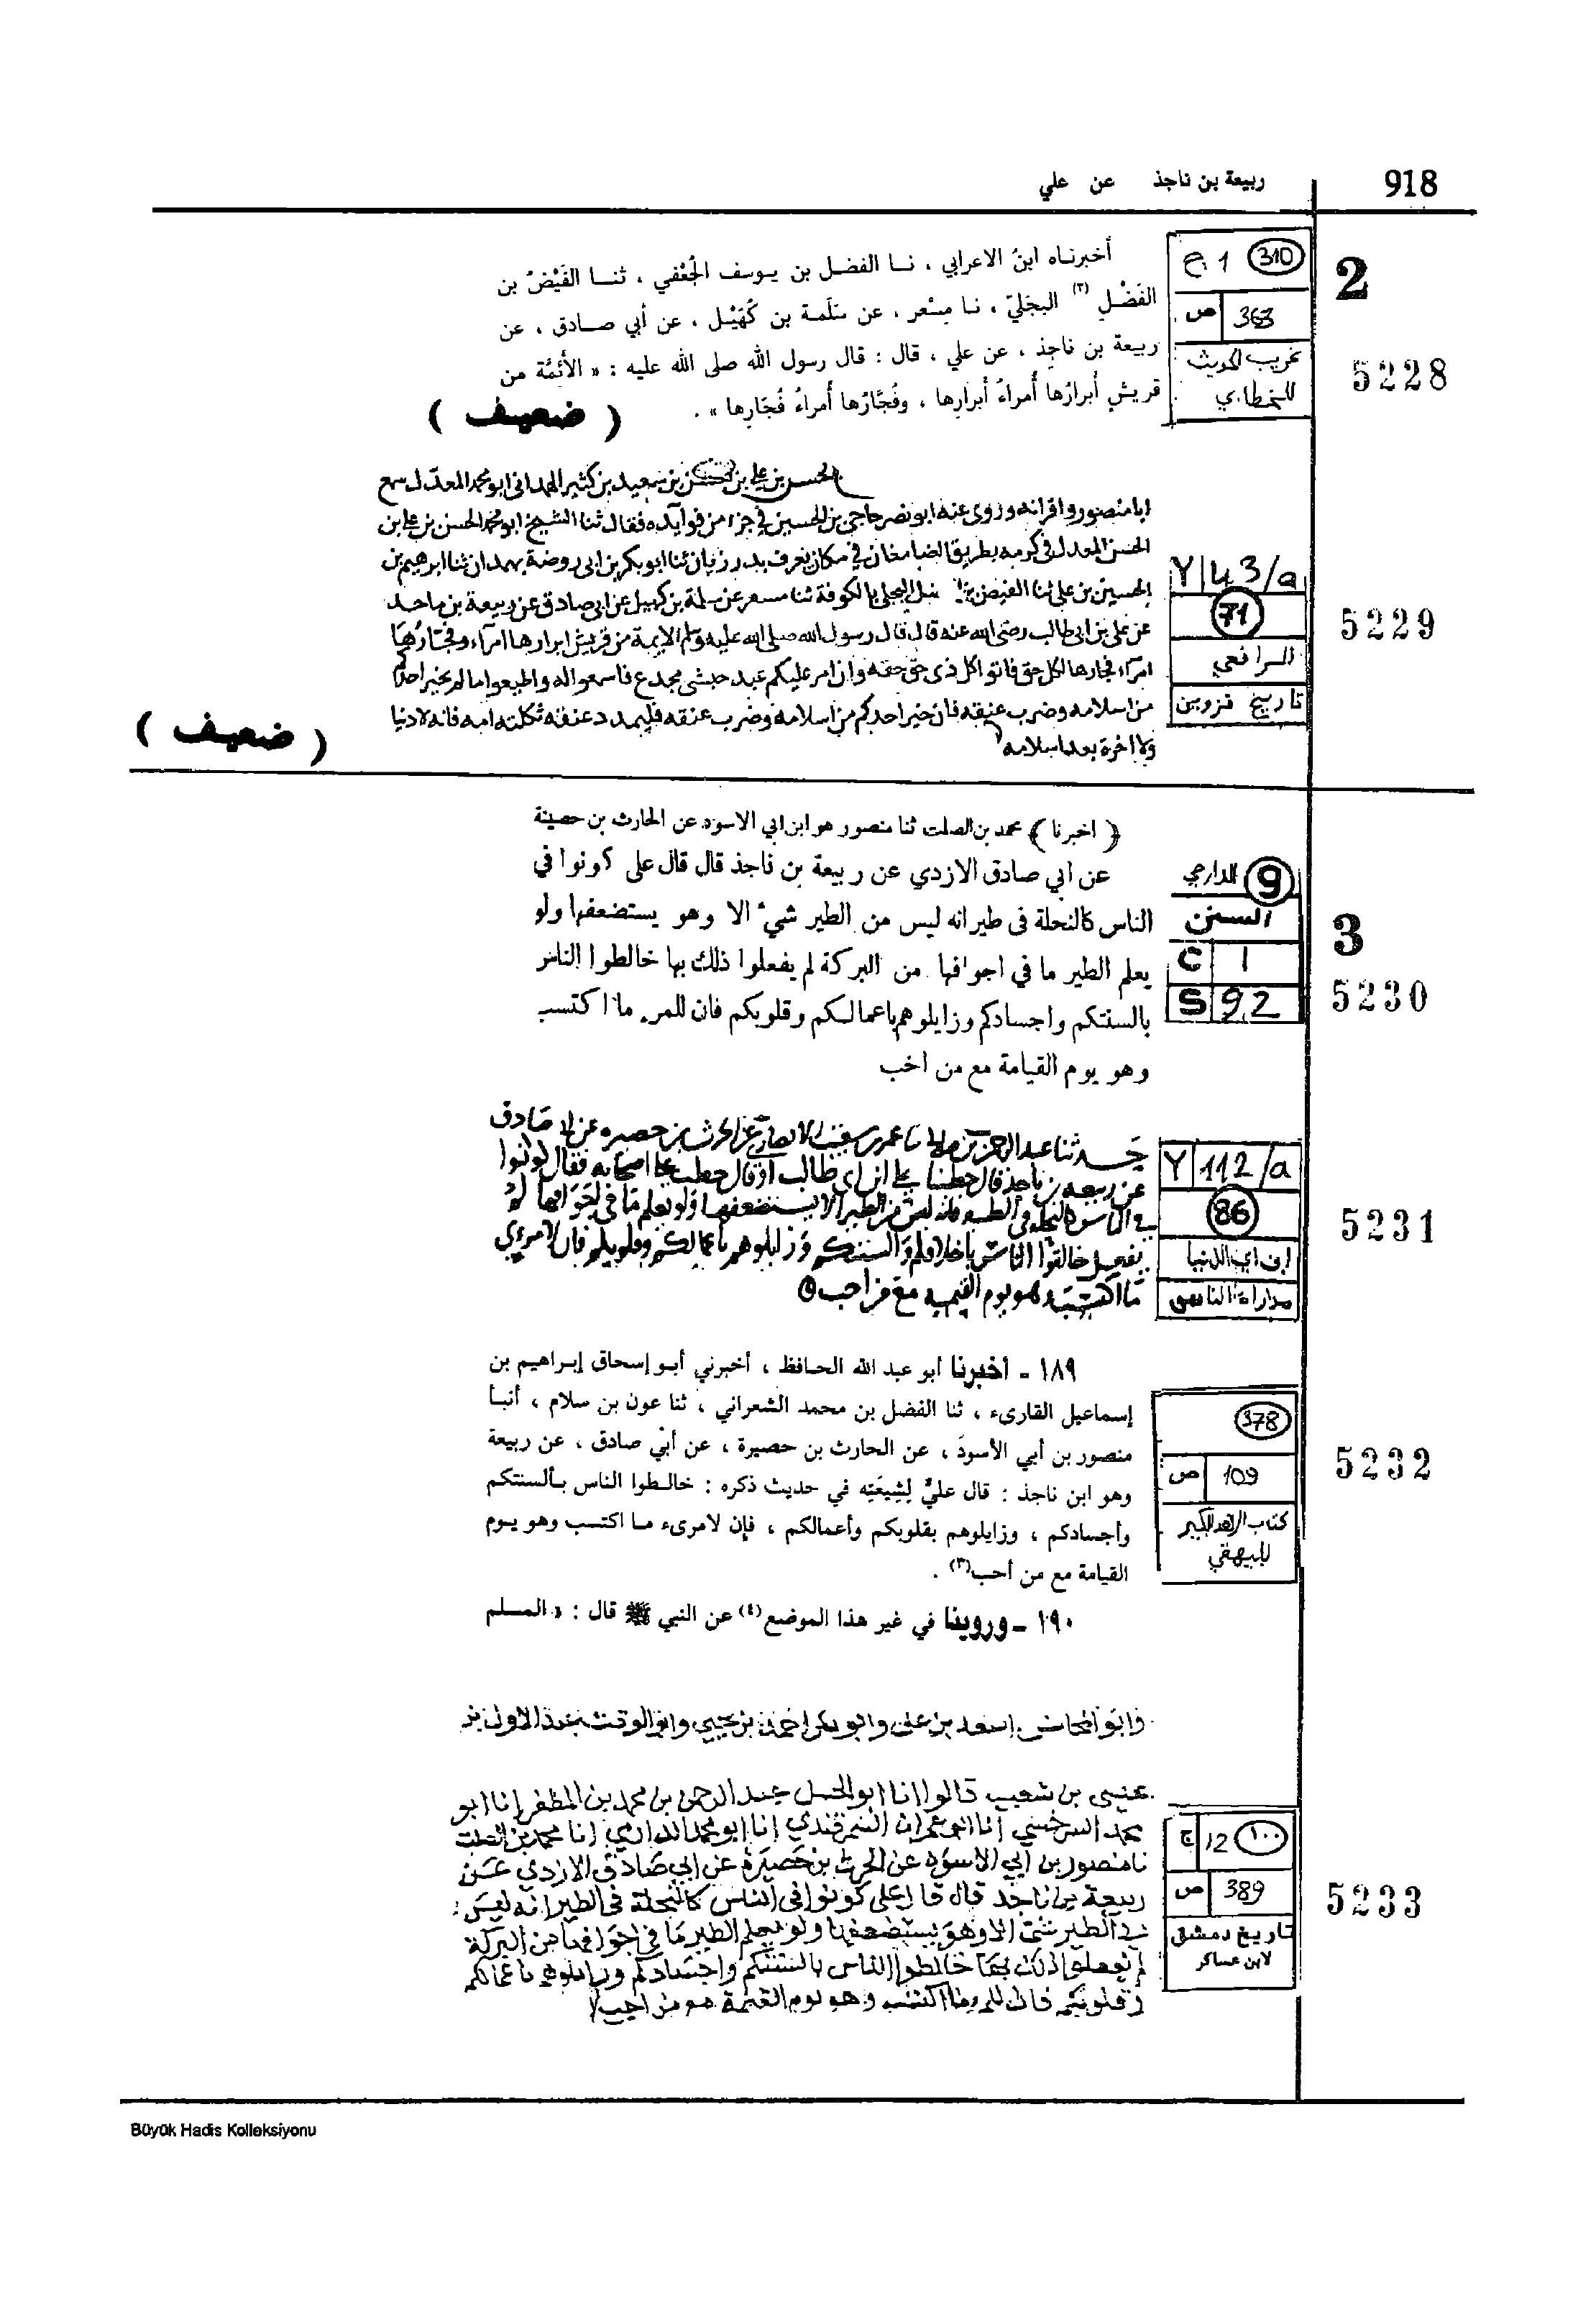 918
ربيعة بن ناجذ عن علي
2
5228
310 1 ج
363 ص
غريب الحديث
للخطابي
أخبرناه ابنُ الاعرابي ، نـا الفضل بن يـوسف الجُعْفي ، ثنـا الفَيْضُ بن
الفَضْلِ (٢) البجَليّ ، نـا مِسْعر ، عن سَلَمة بن كُهَيْل ، عن أبي صـادق ، عن
ربيعة بن ناجِذ ، عن علي ، قال : قال رسول الله صلى الله عليه : « الأئمَّة من
قريشٍ أبرارُها أُمراءُ أبرارِها ، وفُجَّارُها أُمراءُ فُجّارِها » .
( ضعيف )
5229
Y 43/a
71
الرافعي
تاريخ قزوين
الحسن بن علي بن بن سعيد بن كثير الهمدانى ابو محمد المعدل سمع
ابا منصور واقرانه وروى عنه ابو نصر حاجي بن الحسين في جزء من فوايده فقال ثنا الشيخ ابو محمد الحسن بن على بن
الحسن المعدل في كرمه بطريق في مكان يعرف ثنا ابو بكر بن ابى روضة بهمدان ثنا ابرهيم بن
الحسين بن على ثنا الفيض بن البجلى بالكوفة ثنا مسعر عن سلمة بن كهيل عن ابى صادق عن ربيعة بن ماجد
عن على بن ابى طالب رضى الله عنه قال قال رسول الله صلى الله عليه وسلم الايمة من قريش ابرارها امرآء وفجارها
امرآء فجارها لكل حق فاتوا كل ذى حق حقه وان امر عليكم عبد حبشى مجدع فاسمعوا له واطيعوا ما لم يخير احدكم
من اسلامه وضرب عنقه فان خير احدكم من اسلامه وضرب عنقه فليمدد عنقه ثكلته امه فانه لا دنيا
ولا اخرة بعد اسلامه
( ضعيف )
3
5230
9 الدارمي
السنن
C 1
S 92
﴿ اخبرنا ﴾ محمد بن الصلت ثنا منصور هو ابن ابي الاسود عن الحارث بن حصينة
عن ابي صادق الازدي عن ربيعة بن ناجذ قال قال على كونوا في
الناس كالنحلة فى طيرانه ليس من الطير شيء الا وهو يستضعفها ولو
يعلم الطير ما في اجوافها من البركة لم يفعلوا ذلك بها خالطوا الناس
بالسنتكم واجسادكم وزايلوهم باعمالكم وقلوبكم فان للمرء ما اكتسب
وهو يوم القيامة مع من احب
5231
Y 112/a
86
ابن ابي الدنيا
مداراة الناس
حدثنا عبد الرحمن بن صالح نا عمرو بن عن الحرث بن حصيره عن ابي صادق
عن ربيعه بن ناجذ قال خطبنا علي ابن ابي طالب او قال خطب علي اصحابه فقال كونوا
في الناس كالنحله في الطير فانه ليس من الطير الا يستضعفها ولو يعلم ما في اجوافها لم
يفعل خالقوا الناس باخلاقكم والسنتكم وزايلوهم باعمالكم وقلوبكم فان لامرئ
ما اكتسب وهو يوم القيمه مع من احب
5232
378
109 ص
كتاب الزهد الكبير
للبيهقي
١٨٩ - أخبرنا أبو عبد الله الحـافظ ، أخبرني أبـو إسحاق إبـراهيم بن
إسماعيل القارىء ، ثنا الفضل بن محمد الشعراني ، ثنا عون بن سلام ، أنبـأ
منصور بن أبي الأسودَ ، عن الحارث بن حصيرة ، عن أبي صادق ، عن ربيعة
وهو ابن ناجذ : قال عليٌّ لِشِيعَتِه في حديث ذكره : خالـطوا الناس بـألسنتكم
وأجسادكم ، وزايلوهم بقلوبكم وأعمالكم ، فإن لامرىء مـا اكتسب وهو يـوم
القيامة مع من أحب(٣) .
١٩٠ - وروينا في غير هذا الموضع(٤) عن النبي ﷺ قال : « المسلم
5233
١٠٠ 12 ج
389 ص
تاريخ دمشق
لابن عساكر
وابو المحاسن اسعد بن على وابو بكر احمد بن يحيى وابو الوقت عبد الاول بن
عيسى بن شعيب قالوا انا ابو الحسن عبد الرحمن بن محمد بن المظفر انا ابو
محمد السرخسي انا ابو عمران السمرقندي انا ابو محمد الدارمي انا محمد بن الصلت
نا منصور بن ابي الاسود عن الحرث بن حصيرة عن ابي صادق الازدي عن
ربيعة بن ناجد قال قال على كونوا في الناس كالنحلة فى الطير انه ليس
من الطير شئ الا وهو يستضعفها ولو يعلم الطير ما في اجوافها من البركة
لم يفعلوا ذلك بها خالطوا الناس بالسنتكم واجسادكم وزايلوهم باعمالكم
وقلوبكم فان للمرء ما اكتسب وهو يوم القيمة مع من احب
Büyük Hadis Kolleksiyonu